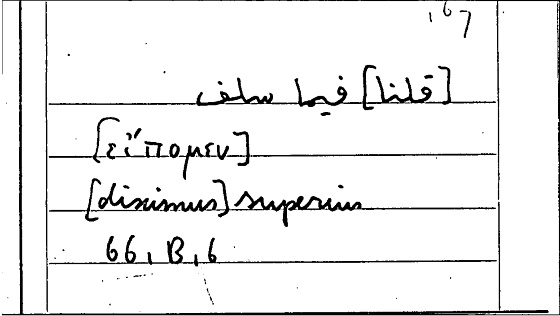 167
[قلنا] فيما سلف
[εἴπομεν]
[diximus] superius
66, B, 6